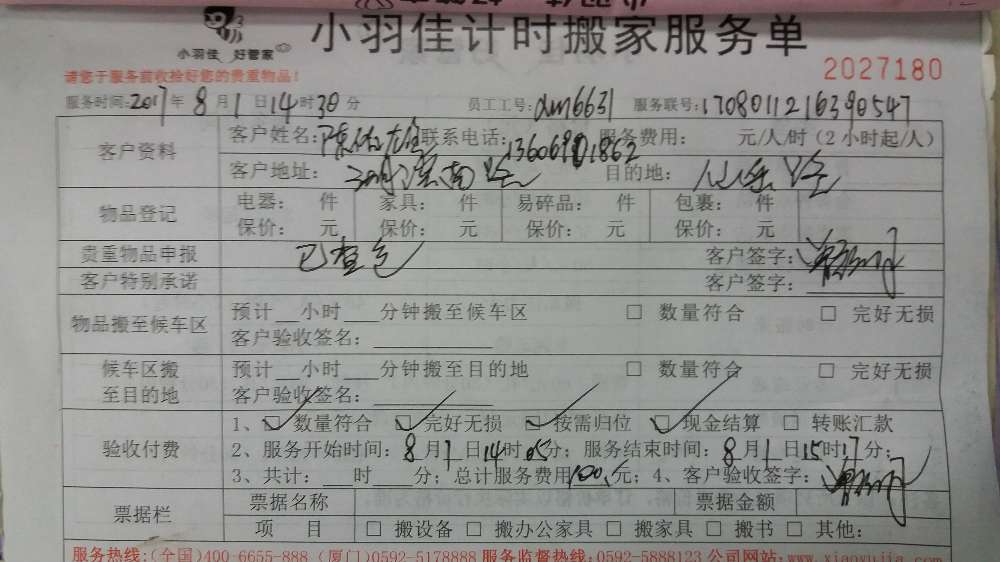 小羽佳 好管家
小羽佳计时搬家服务单
请您于服务前收捡好您的贵重物品！
2027180
服务时间：2017年8月1日14时30分 员工工号：dm6631 服务联号：1708011216390547
客户资料
客户姓名： 联系电话：13606901862 服务费用： 元/人/时（2小时起/人）
客户地址： 目的地：
物品登记
电器： 件 家具： 件 易碎品： 件 包裹： 件
保价： 元 保价： 元 保价： 元 保价： 元
贵重物品申报 已查包 客户签字：
客户特别承诺 客户签字：
物品搬至候车区
预计___小时___分钟搬至候车区 □ 数量符合 □ 完好无损
客户验收签名：
候车区搬至目的地
预计___小时___分钟搬至目的地 □ 数量符合 □ 完好无损
客户验收签名：
验收付费
1、☑ 数量符合 ☑ 完好无损 ☑ 按需归位 ☑ 现金结算 □ 转账汇款
2、服务开始时间：8月1日14时05分；服务结束时间：8月1日15时17分；
3、共计：___时___分；总计服务费用100元；4、客户验收签字：
票据栏
票据名称 票据金额
项 目 □ 搬设备 □ 搬办公家具 □ 搬家具 □ 搬书 □ 其他：
服务热线：(全国)400-6655-888 (厦门)0592-5178888 服务监督热线：0592-5888123 公司网站：www.xiaoyujia.com